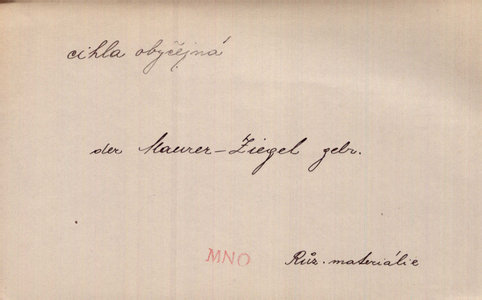 cihla obyčejná
der Maurer-Ziegel gebr.
MNO
Růz. materiálie